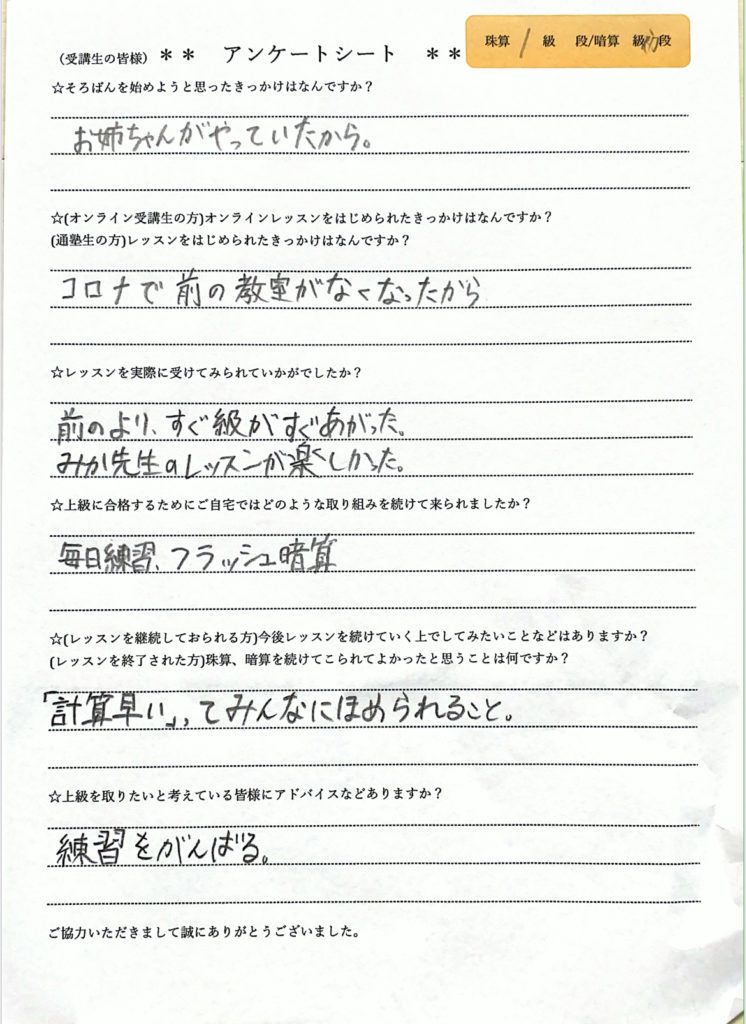 (受講生の皆様) ** アンケートシート **
珠算 1 級 段/暗算 級 初段
☆そろばんを始めようと思ったきっかけはなんですか？
お姉ちゃんがやっていたから。
☆(オンライン受講生の方)オンラインレッスンをはじめられたきっかけはなんですか？
(通塾生の方)レッスンをはじめられたきっかけはなんですか？
コロナで前の教室がなくなったから
☆レッスンを実際に受けてみられていかがでしたか？
前のより、すぐ級がすぐあがった。
みか先生のレッスンが楽しかった。
☆上級に合格するためにご自宅ではどのような取り組みを続けて来られましたか？
毎日練習、フラッシュ暗算
☆(レッスンを継続しておられる方)今後レッスンを続けていく上でしてみたいことなどはありますか？
(レッスンを終了された方)珠算、暗算を続けてこられてよかったと思うことは何ですか？
「計算早い」、てみんなにほめられること。
☆上級を取りたいと考えている皆様にアドバイスなどありますか？
練習をがんばる。
ご協力いただきまして誠にありがとうございました。